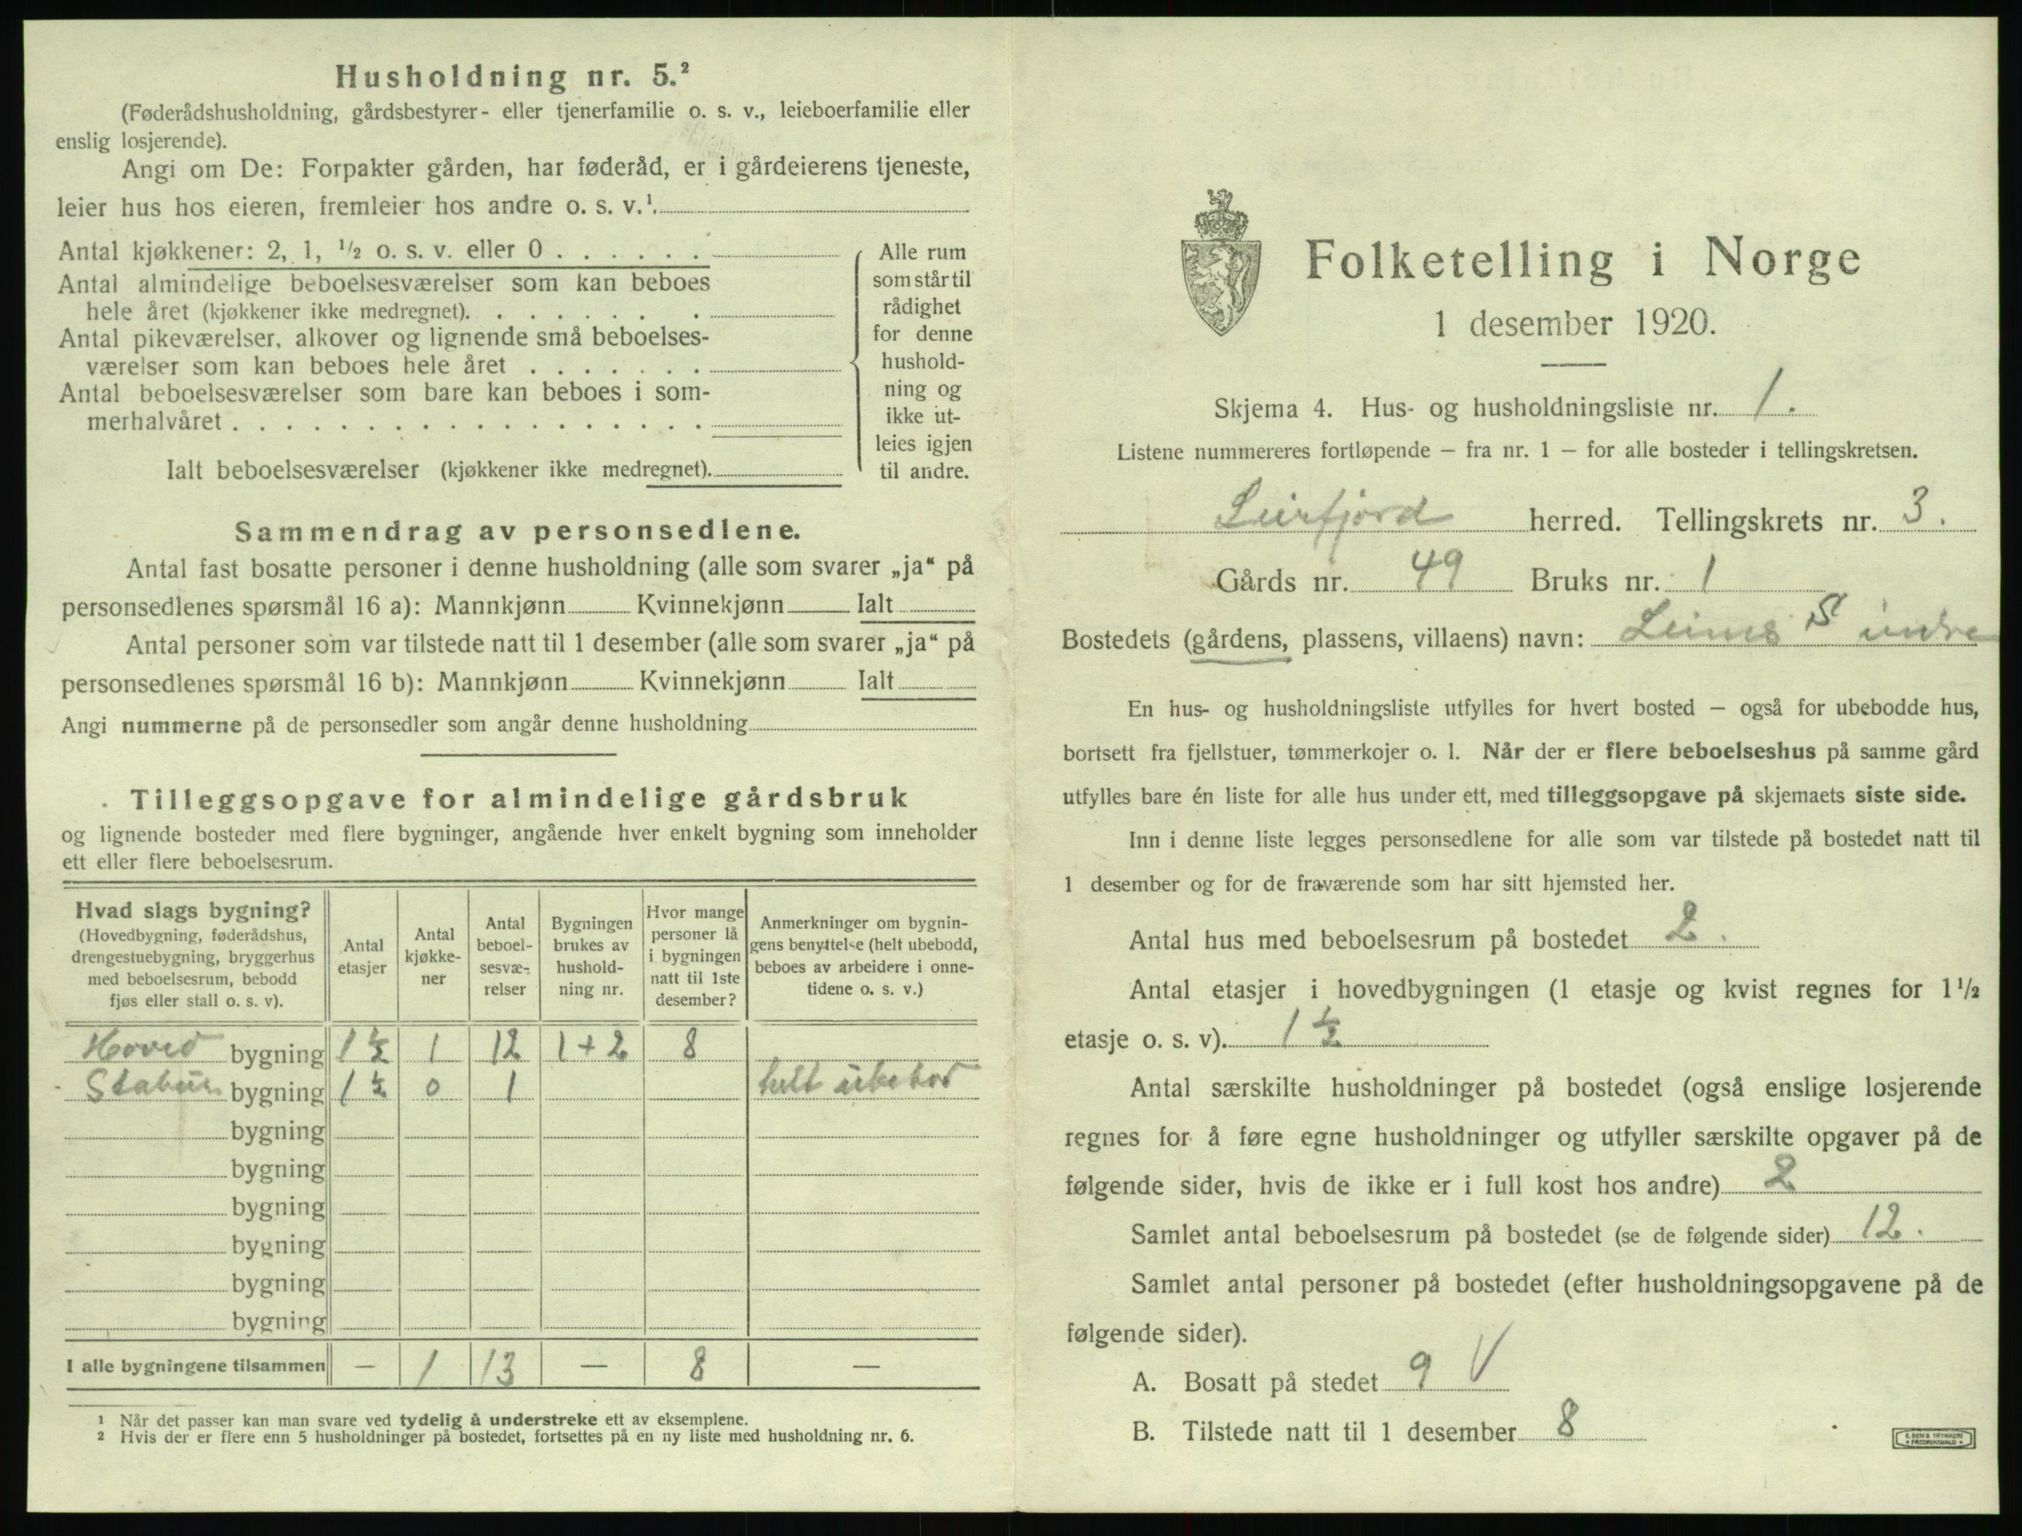 Husholdning nr. 5.²
(Føderådshusholdning, gårdsbestyrer- eller tjenerfamilie o. s. v., leieboerfamilie eller
enslig losjerende).
Angi om De: Forpakter gården, har føderåd, er i gårdeierens tjeneste,
leier hus hos eieren, fremleier hos andre o. s. v.¹
Antal kjøkkener: 2, 1, ½ o. s. v. eller 0
Antal almindelige beboelsesværelser som kan beboes
hele året (kjøkkener ikke medregnet)
Antal pikeværelser, alkover og lignende små beboelses-
værelser som kan beboes hele året
Antal beboelsesværelser som bare kan beboes i som-
merhalvåret
Ialt beboelsesværelser (kjøkkener ikke medregnet)
Alle rum
som står til
rådighet
for denne
hushold-
ning og
ikke ut-
leies igjen
til andre.
Sammendrag av personsedlene.
Antal fast bosatte personer i denne husholdning (alle som svarer „ja“ på
personsedlenes spørsmål 16 a): Mannkjønn Kvinnekjønn Ialt
Antal personer som var tilstede natt til 1 desember (alle som svarer „ja“ på
personsedlenes spørsmål 16 b): Mannkjønn Kvinnekjønn Ialt
Angi nummerne på de personsedler som angår denne husholdning
Tilleggsopgave for almindelige gårdsbruk
og lignende bosteder med flere bygninger, angående hver enkelt bygning som inneholder
ett eller flere beboelsesrum.
Hvad slags bygning?
(Hovedbygning, føderådshus,
drengestuebygning, bryggerhus
med beboelsesrum, bebodd
fjøs eller stall o. s. v).
Antal
etasjer
Antal
kjøkke-
ner
Antal
beboel-
sesvæ-
relser
Bygningen
brukes av
hushold-
ning nr.
Hvor mange
personer lå
i bygningen
natt til 1ste
desember?
Anmerkninger om bygnin-
gens benyttelse (helt ubebodd,
beboes av arbeidere i onne-
tidene o. s. v.)
Hoved bygning 1½ 1 12 1+2 8
Stabur bygning 1½ 0 1 helt ubebod
bygning
bygning
bygning
bygning
bygning
bygning
I alle bygningene tilsammen — 1 13 — 8 —
¹ Når det passer kan man svare ved tydelig å understreke ett av eksemplene.
² Hvis der er flere enn 5 husholdninger på bostedet, fortsettes på en ny liste med husholdning nr. 6.
Folketelling i Norge
1 desember 1920.
Skjema 4. Hus- og husholdningsliste nr. 1.
Listene nummereres fortløpende — fra nr. 1 — for alle bosteder i tellingskretsen.
Leirfjord herred. Tellingskrets nr. 3.
Gårds nr. 49 Bruks nr. 1
Bostedets (gårdens, plassens, villaens) navn: indre
En hus- og husholdningsliste utfylles for hvert bosted — også for ubebodde hus,
bortsett fra fjellstuer, tømmerkojer o. l. Når der er flere beboelseshus på samme gård
utfylles bare én liste for alle hus under ett, med tilleggsopgave på skjemaets siste side.
Inn i denne liste legges personsedlene for alle som var tilstede på bostedet natt til
1 desember og for de fraværende som har sitt hjemsted her.
Antal hus med beboelsesrum på bostedet 2.
Antal etasjer i hovedbygningen (1 etasje og kvist regnes for 1½
etasje o. s. v). 1½
Antal særskilte husholdninger på bostedet (også enslige losjerende
regnes for å føre egne husholdninger og utfyller særskilte opgaver på de
følgende sider, hvis de ikke er i full kost hos andre) 2
Samlet antal beboelsesrum på bostedet (se de følgende sider) 12.
Samlet antal personer på bostedet (efter husholdningsopgavene på de
følgende sider).
A. Bosatt på stedet 9 V
B. Tilstede natt til 1 desember 8